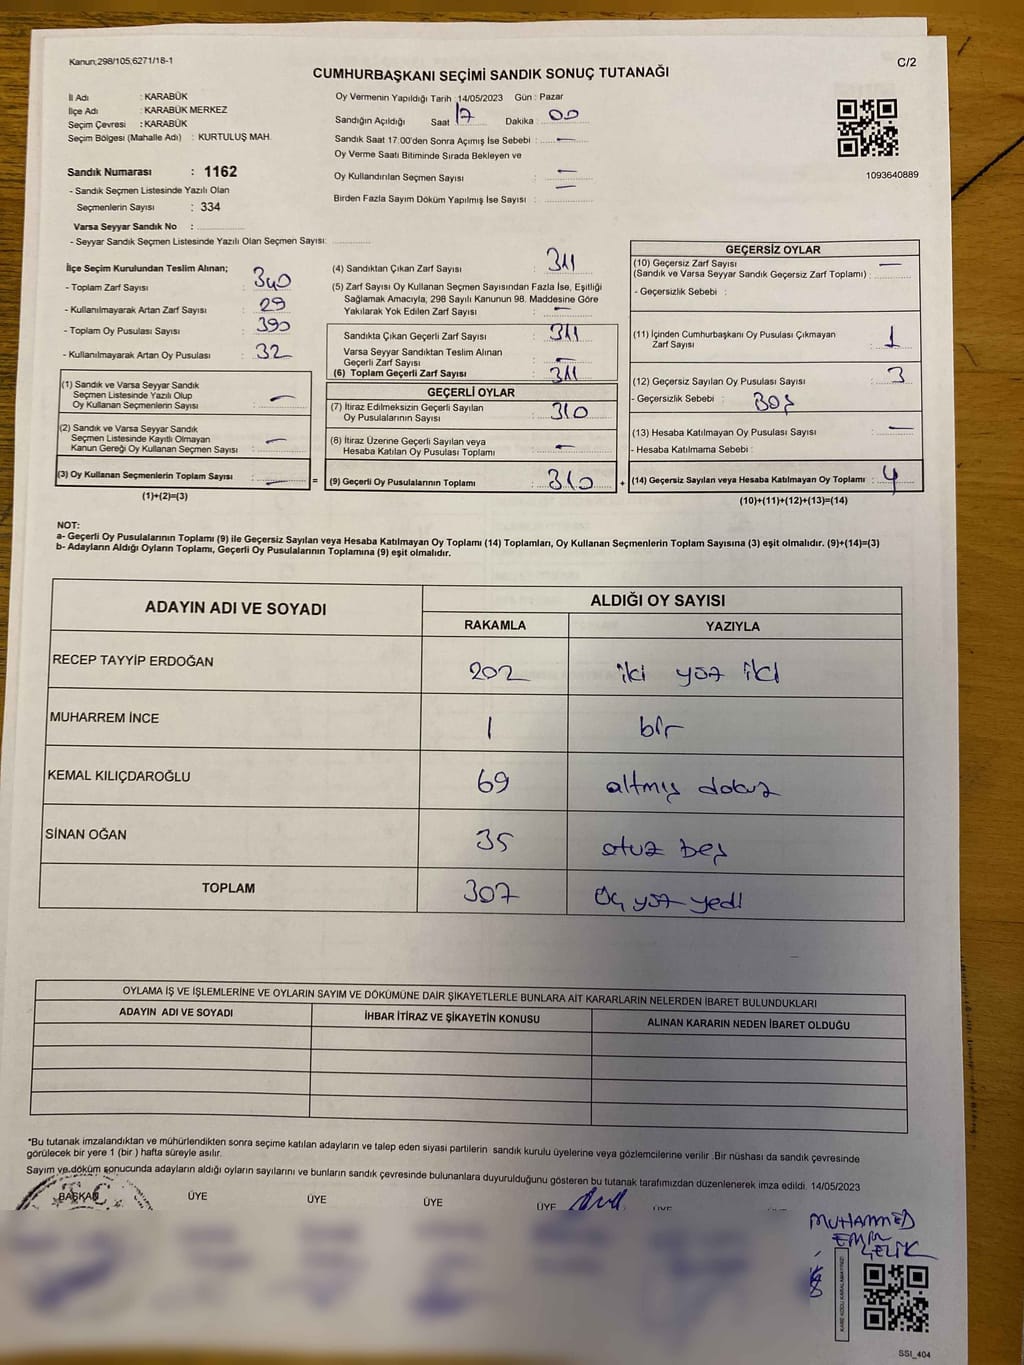 Kanun;298/105,6271/18-1
C/2
CUMHURBAŞKANI SEÇİMİ SANDIK SONUÇ TUTANAĞI
İl Adı : KARABÜK
İlçe Adı : KARABÜK MERKEZ
Seçim Çevresi : KARABÜK
Seçim Bölgesi (Mahalle Adı) : KURTULUŞ MAH.
Sandık Numarası : 1162
- Sandık Seçmen Listesinde Yazılı Olan
Seçmenlerin Sayısı : 334
Varsa Seyyar Sandık No :
- Seyyar Sandık Seçmen Listesinde Yazılı Olan Seçmen Sayısı:
Oy Vermenin Yapıldığı Tarih :14/05/2023 Gün : Pazar
Sandığın Açıldığı Saat 17 Dakika : 00
Sandık Saat 17:00'den Sonra Açımış İse Sebebi : —
Oy Verme Saati Bitiminde Sırada Bekleyen ve
Oy Kullandırılan Seçmen Sayısı : —
Birden Fazla Sayım Döküm Yapılmış İse Sayısı : —
1093640889
İlçe Seçim Kurulundan Teslim Alınan;
- Toplam Zarf Sayısı : 340
- Kullanılmayarak Artan Zarf Sayısı : 29
- Toplam Oy Pusulası Sayısı : 390
- Kullanılmayarak Artan Oy Pusulası : 32
(1) Sandık ve Varsa Seyyar Sandık
Seçmen Listesinde Yazılı Olup
Oy Kullanan Seçmenlerin Sayısı : —
(2) Sandık ve Varsa Seyyar Sandık
Seçmen Listesinde Kayıtlı Olmayan
Kanun Gereği Oy Kullanan Seçmen Sayısı : —
(3) Oy Kullanan Seçmenlerin Toplam Sayısı : —
(1)+(2)=(3)
(4) Sandıktan Çıkan Zarf Sayısı : 311
(5) Zarf Sayısı Oy Kullanan Seçmen Sayısından Fazla İse, Eşitliği
Sağlamak Amacıyla, 298 Sayılı Kanunun 98. Maddesine Göre
Yakılarak Yok Edilen Zarf Sayısı : —
Sandıkta Çıkan Geçerli Zarf Sayısı : 311
Varsa Seyyar Sandıktan Teslim Alınan
Geçerli Zarf Sayısı : —
(6) Toplam Geçerli Zarf Sayısı : 311
GEÇERLİ OYLAR
(7) İtiraz Edilmeksizin Geçerli Sayılan
Oy Pusulalarının Sayısı : 310
(8) İtiraz Üzerine Geçerli Sayılan veya
Hesaba Katılan Oy Pusulası Toplamı : —
= (9) Geçerli Oy Pusulalarının Toplamı : 310
GEÇERSİZ OYLAR
(10) Geçersiz Zarf Sayısı —
(Sandık ve Varsa Seyyar Sandık Geçersiz Zarf Toplamı) :
- Geçersizlik Sebebi :
(11) İçinden Cumhurbaşkanı Oy Pusulası Çıkmayan
Zarf Sayısı : 1
(12) Geçersiz Sayılan Oy Pusulası Sayısı : 3
- Geçersizlik Sebebi : BOŞ
(13) Hesaba Katılmayan Oy Pusulası Sayısı : —
- Hesaba Katılmama Sebebi :
+ (14) Geçersiz Sayılan veya Hesaba Katılmayan Oy Toplamı : 4
(10)+(11)+(12)+(13)=(14)
NOT:
a- Geçerli Oy Pusulalarının Toplamı (9) ile Geçersiz Sayılan veya Hesaba Katılmayan Oy Toplamı (14) Toplamları, Oy Kullanan Seçmenlerin Toplam Sayısına (3) eşit olmalıdır. (9)+(14)=(3)
b- Adayların Aldığı Oyların Toplamı, Geçerli Oy Pusulalarının Toplamına (9) eşit olmalıdır.
ADAYIN ADI VE SOYADI
ALDIĞI OY SAYISI
RAKAMLA YAZIYLA
RECEP TAYYİP ERDOĞAN 202 iki yüz iki
MUHARREM İNCE 1 bir
KEMAL KILIÇDAROĞLU 69 altmış dokuz
SİNAN OĞAN 35 otuz beş
TOPLAM 307 Üç yüz yedi
OYLAMA İŞ VE İŞLEMLERİNE VE OYLARIN SAYIM VE DÖKÜMÜNE DAİR ŞİKAYETLERLE BUNLARA AİT KARARLARIN NELERDEN İBARET BULUNDUKLARI
ADAYIN ADI VE SOYADI İHBAR İTİRAZ VE ŞİKAYETİN KONUSU ALINAN KARARIN NEDEN İBARET OLDUĞU
*Bu tutanak imzalandıktan ve mühürlendikten sonra seçime katılan adayların ve talep eden siyasi partilerin sandık kurulu üyelerine veya gözlemcilerine verilir .Bir nüshası da sandık çevresinde
görülecek bir yere 1 (bir ) hafta süreyle asılır.
Sayım ve döküm sonucunda adayların aldığı oyların sayılarını ve bunların sandık çevresinde bulunanlara duyurulduğunu gösteren bu tutanak tarafımızdan düzenlenerek imza edildi. 14/05/2023
BAŞKAN ÜYE ÜYE ÜYE ÜYE
MUHAMMED
EMİN
ÇELİK
SSI_404